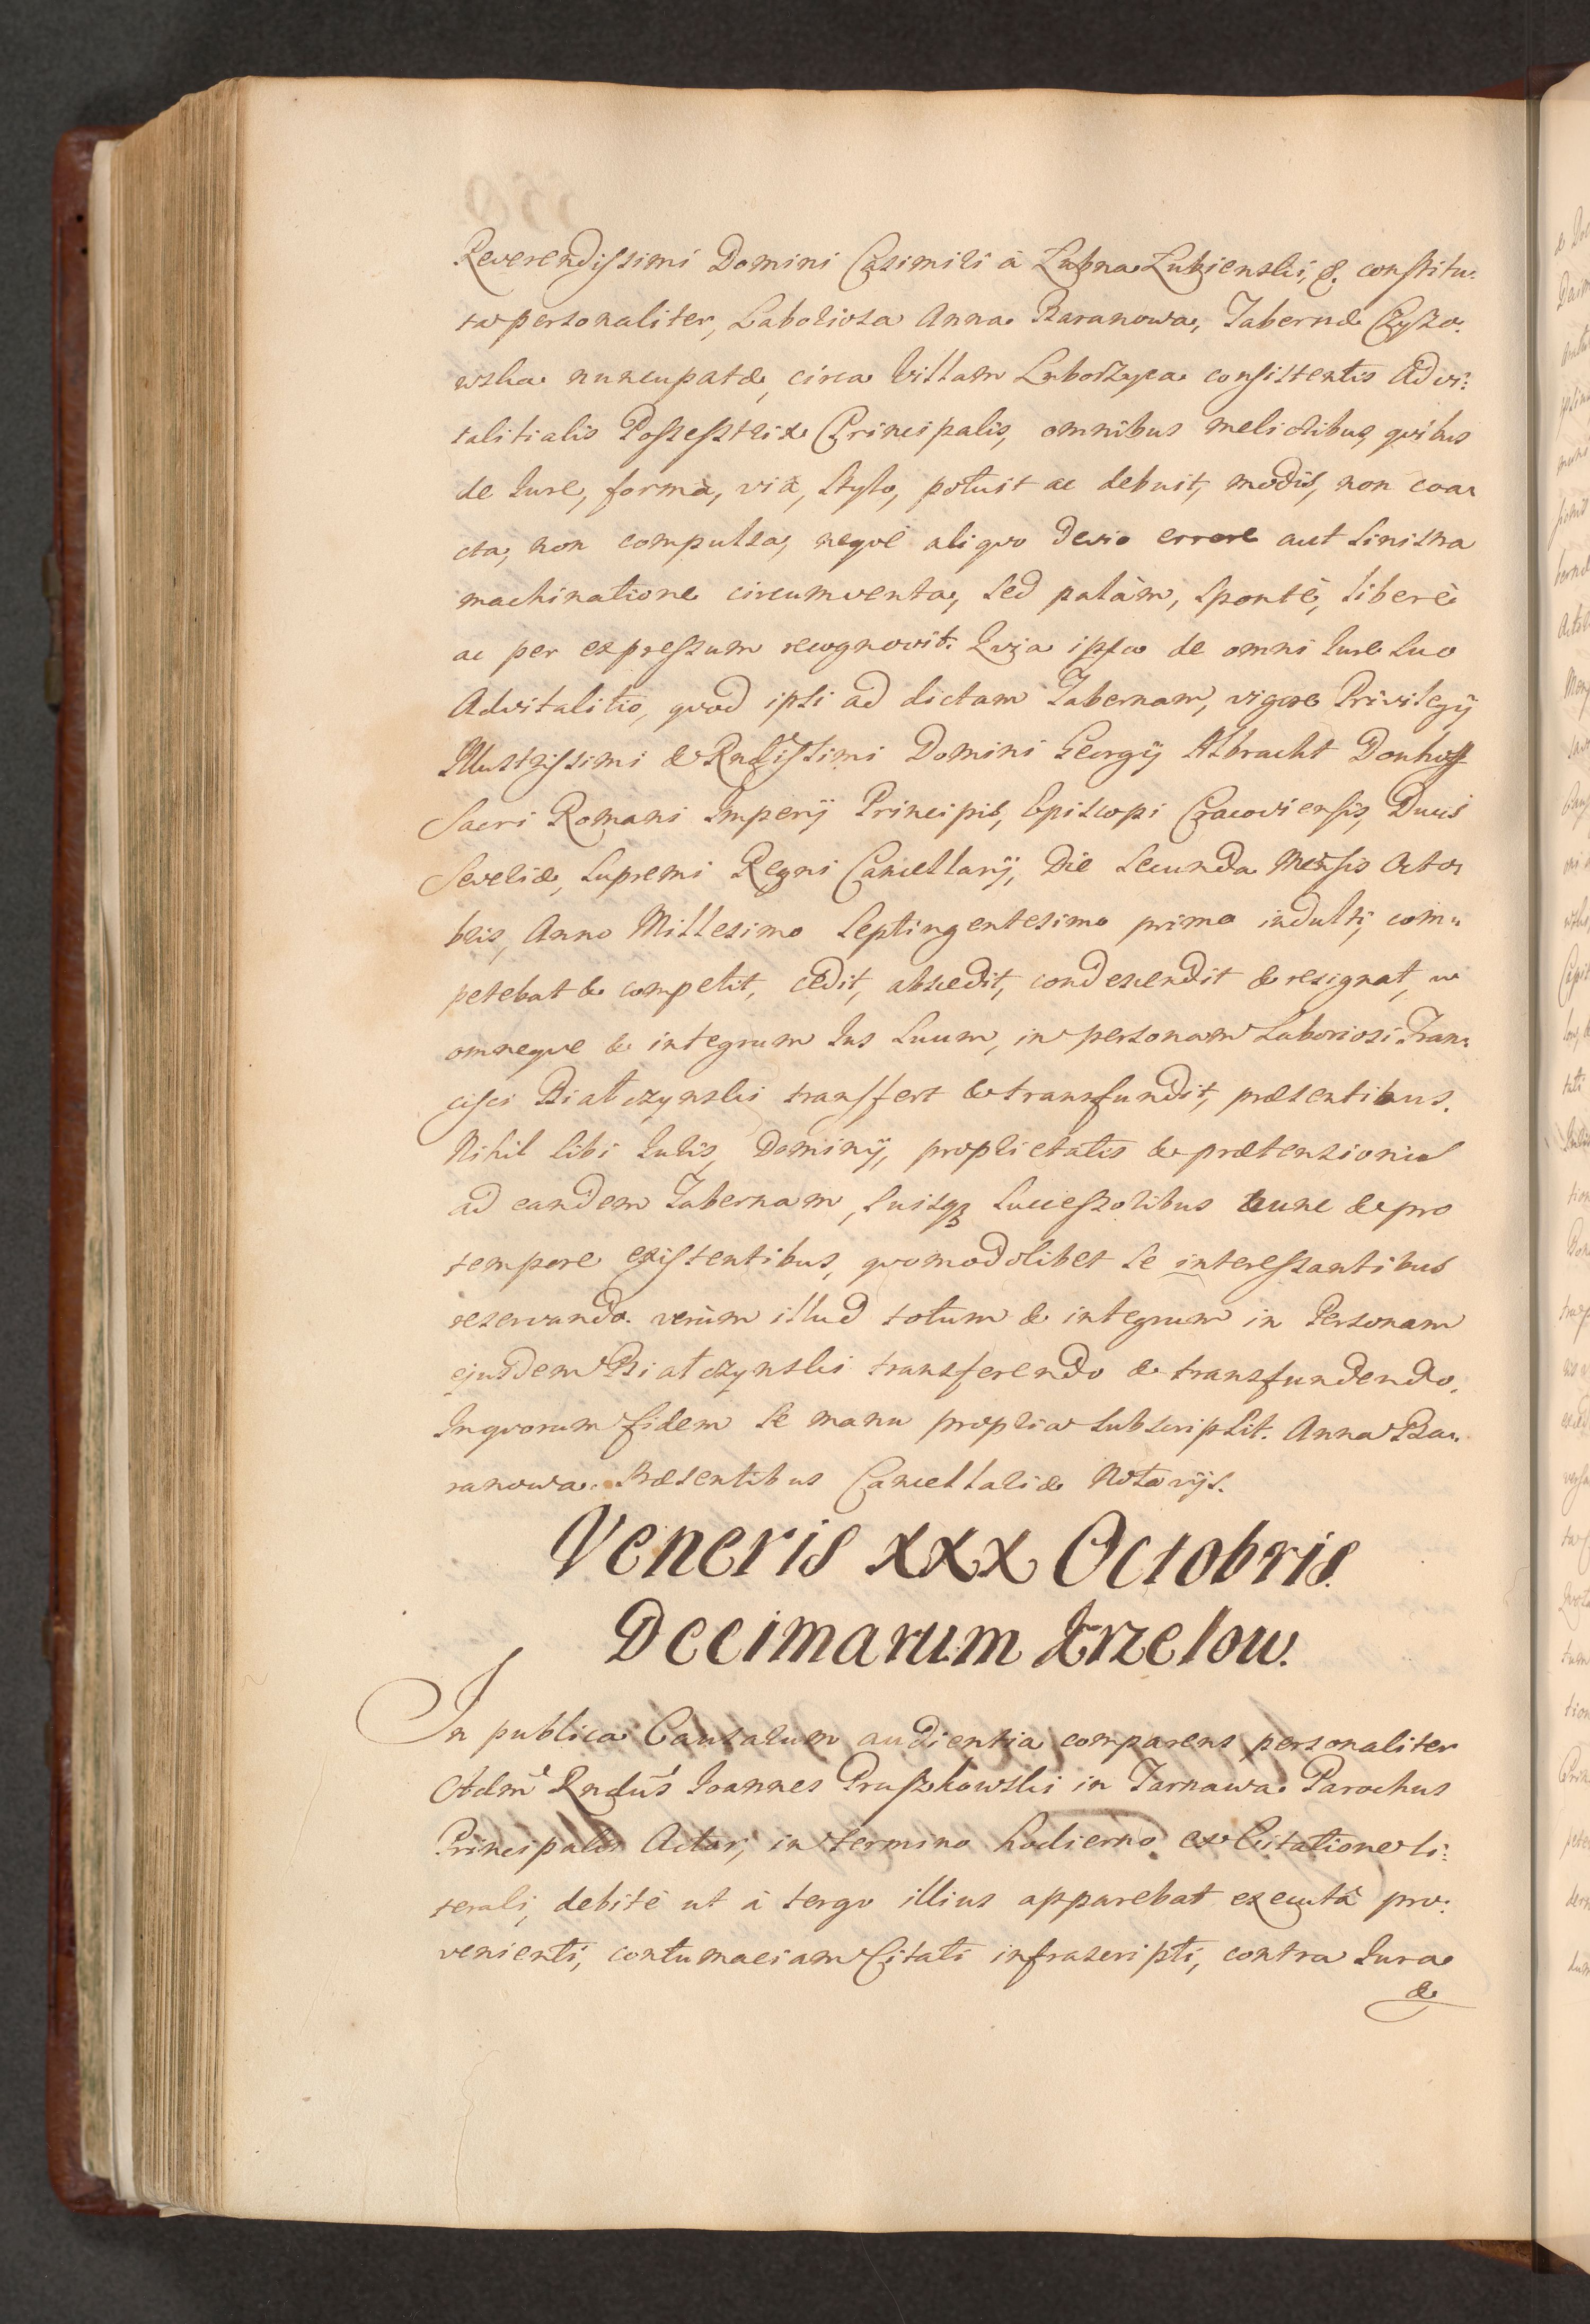 Reverendissimi Domini Casimiri à Lubna Lubienski, &. constitu:
ta personaliter, Laboriosa Anna Baranowa, Tabernæ Czyżo:
wska nuncupatæ, circa Villam Luborzyca consistentis Advi:
talitialis Possestrix Principalis, omnibus melioribus, quibus
de Iure, formà, vià, stylo, potuit ac debuit, modis, non coa:
cta, non compulsa, neqve aliqvo devio errore aut sinistra
machinatione circumventa, sed palàm, spontè, liberè
ac per expressum recognovit. Qvia ipsa de omni Iure suo
Advitalitio, qvod ipsi ad dictam Tabernam, vigore Privilegij
Illustrissimi & Rndissimi Domini Georgij Albracht Donhoff
Sacri Romani Imperij Principis, Episcopi Cracoviensis, Ducis
Severiæ, Supremi Regni Cancellarij, Die secunda Mensis Octo:
bris, Anno Millesimo Septingentesimo primo indulti, com:
petebat & competit, cedit, abscedit, condescendit & resignat, ac
omneqve & integrum Ius suum, in personam Laboriosi Fran:
cisci Białczynski transfert & transfundit, præsentibus.
Nihil sibi Iuris, Dominij, proprietatis & prætensionis
ad eandem Tabernam, suisqȝ successoribus nunc & pro
tempore existentibus, qvomodolibet se interessantibus
reservando. verùm illud totum & integrum in Personam
ejusdem Białczynski transferendo & transfundendo.
In qvorum fidem se manu propria subscripsit. Anna Ba:
ranowa. Præsentibus Cancellariæ Notarijs.
Veneris XXX Octobris.
Decimarum Krzelow.
In publica Causarum audientia comparens personaliter
Adm Rndus Ioannes Pruszkowski in Tarnawa Parochus
Principalis Actor, in termino hodierno ex Citatione li:
terali, debitè ut à tergo illius apparebat executâ pro:
venienti, contumaciam Citati infrascripti, contra Iura
&